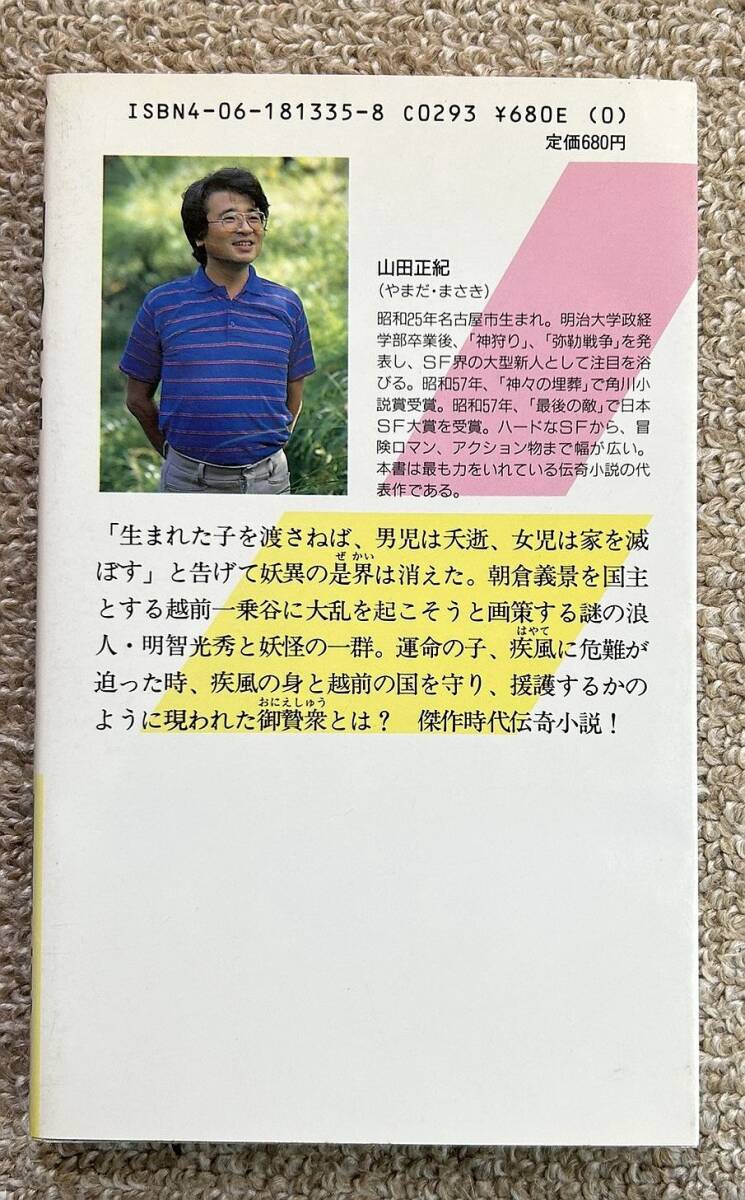 ISBN4-06-181335-8 C0293 ¥680E (0)
定価680円
山田正紀
(やまだ・まさき)
昭和25年名古屋市生まれ。明治大学政経
学部卒業後、「神狩り」、「弥勒戦争」を発
表し、SF界の大型新人として注目を浴
びる。昭和57年、「神々の埋葬」で角川小
説賞受賞。昭和57年、「最後の敵」で日本
SF大賞を受賞。ハードなSFから、冒
険ロマン、アクション物まで幅が広い。
本書は最も力をいれている伝奇小説の代
表作である。
「生まれた子を渡さねば、男児は夭逝、女児は家を滅
ぼす」と告げて妖異の是界は消えた。朝倉義景を国主
ぜかい
とする越前一乗谷に大乱を起こそうと画策する謎の浪
人・明智光秀と妖怪の一群。運命の子、疾風に危難が
はやて
迫った時、疾風の身と越前の国を守り、援護するかの
ように現われた御贄衆とは? 傑作時代伝奇小説!
おにえしゅう